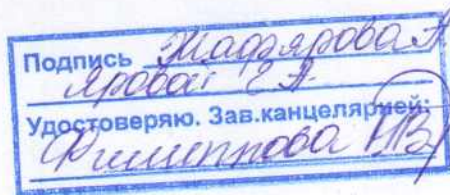 Подпись Жафярова А
Яровой Е А.
Удостоверяю. Зав.канцелярией:
Филиппова ИВ